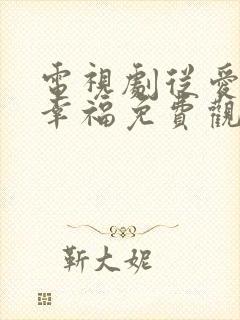 電視劇從愛
幸福免費觀
靳大妮